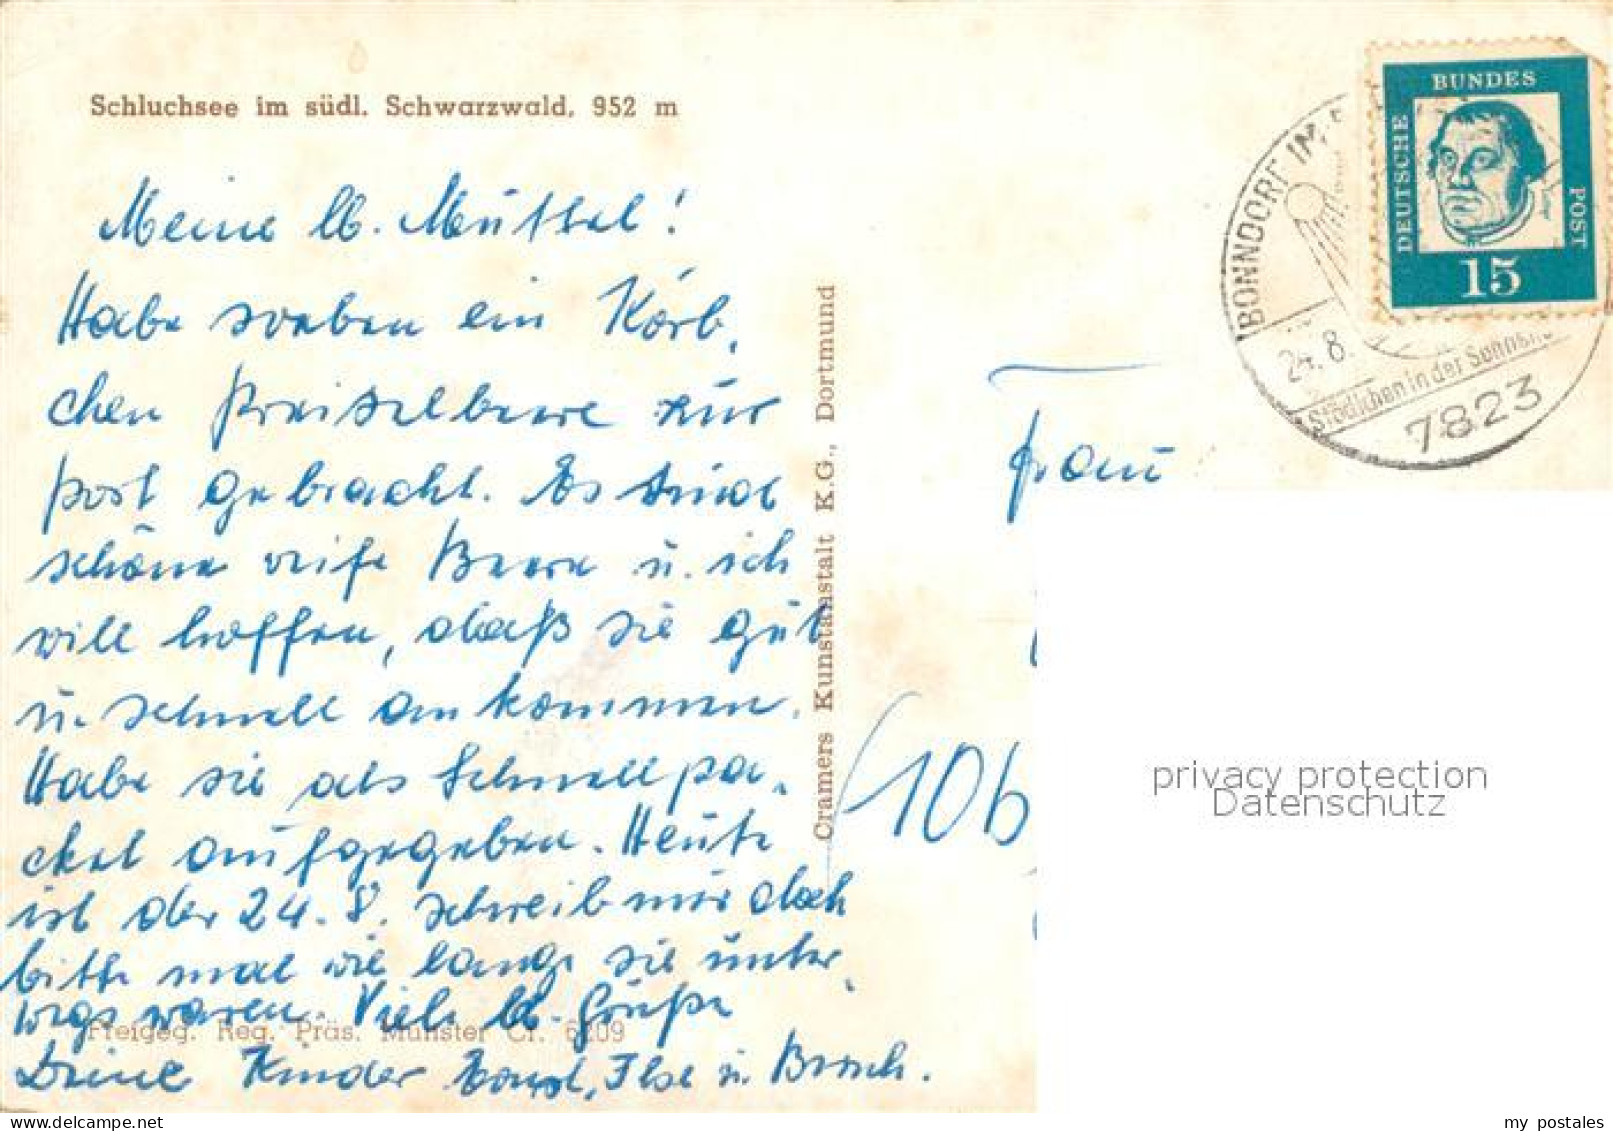 Schluchsee im südl. Schwarzwald, 952 m
Meine lb. Muttel!
Habe soeben ein Körb,
chen Preiselbeere zur
Post gebracht. Es sind
schöne reife Beere u. ich
will hoffen, daß sie gut
u. schnell ankommen.
Habe sie als Schnellpa,
cket aufgegeben. Heute
ist der 24. 8. schreib mir doch
bitte mal wie lange sie unter,
wegs waren. Viele lb. Grüße
Deine Kinder Ilse u.
Freigeg. Reg. Präs. Münster Cr. 6209
Cramers Kunstanstalt K.G., Dortmund
BONNDORF IM
24. 8.
Städtchen in der
7823
DEUTSCHE
BUNDES
POST
15
Frau
10b
privacy protection
Datenschutz
my postales